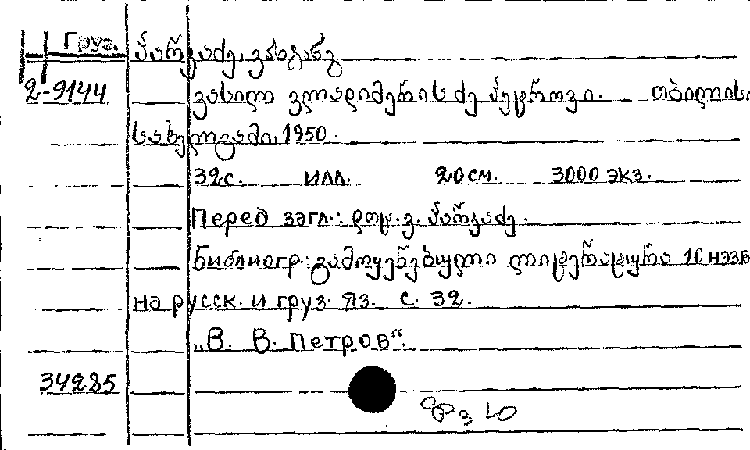 Груз. პარკაძე, ვახტანგ
2-9144 ვასილ ვლადიმერის ძე პეტროვი. თბილისი
სახელგამი, 1950.
32 с. илл. 20 см. 3000 экз.
Перед загл.: დოც. ვ. პარკაძე.
Библиогр.: გამოყენებული ლიტერატურა 10 назв
на русск. и груз. яз. с. 32.
„В. В. Петров“.
34285